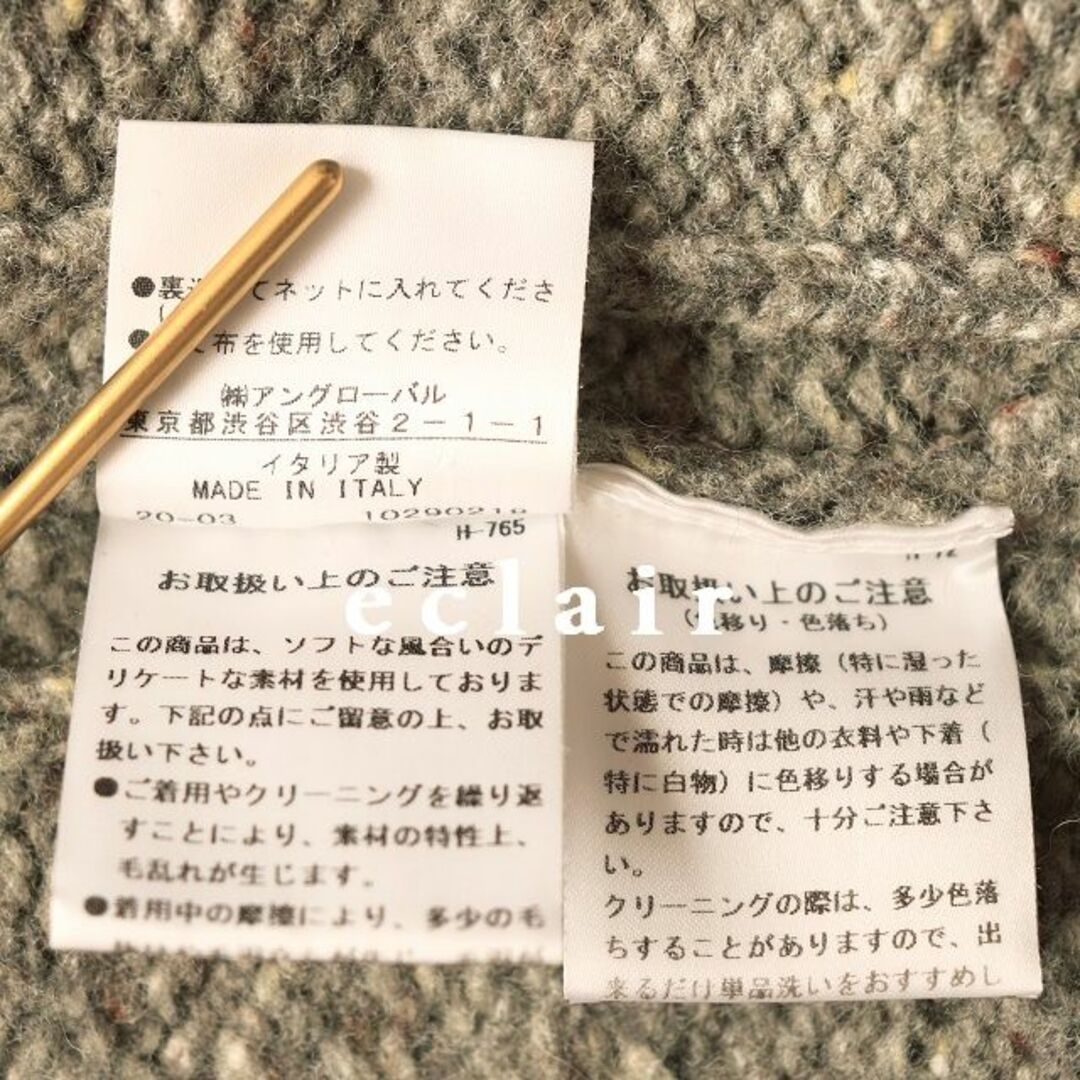 ●裏 てネットに入れてくださ
て布を使用してください。
㈱アングローバル
東京都渋谷区渋谷2-1-1
イタリア製
MADE IN ITALY
20-03 10290216
H-765
お取扱い上のご注意
この商品は、ソフトな風合いのデ
リケートな素材を使用しておりま
す。下記の点にご留意の上、お取
扱い下さい。
●ご着用やクリーニングを繰り返
すことにより、素材の特性上、
毛乱れが生じます。
●着用中の摩擦により、多少の毛
eclair
お取扱い上のご注意
移り・色落ち)
この商品は、摩擦(特に湿った
状態での摩擦)や、汗や雨など
で濡れた時は他の衣料や下着(
特に白物)に色移りする場合が
ありますので、十分ご注意下さ
い。
クリーニングの際は、多少色落
ちすることがありますので、出
来るだけ単品洗いをおすすめし